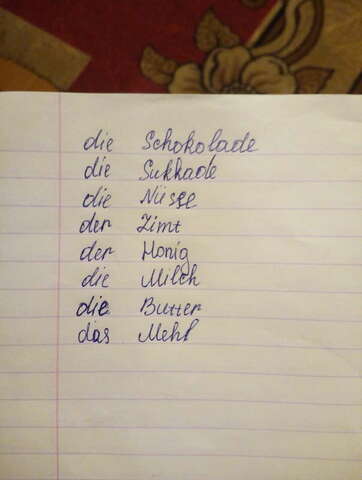 die Schokolade
die Sukkade
die Nüsse
der Zimt
der Honig
die Milch
die Butter
das Mehl